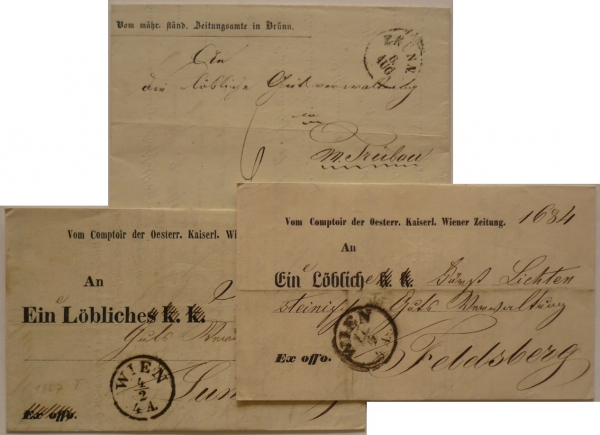 Vom mähr. ständ. Zeitungsamte in Brünn.
BRÜNN
6
AUG
An
die löbliche Gutsverwaltung
in
M. Treibau
6
Vom Comptoir der Oesterr. Kaiserl. Wiener Zeitung.
1684
An
Ein Löbliche k. k. Fürst Lichten
steinische Guts Verwaltung
WIEN
Ex offo.
Feldsberg
Vom Comptoir der Oesterr. Kaiserl. Wi
An
Ein Löbliches k. k.
Guts
WIEN
4
2
4 A.
Ex offo.